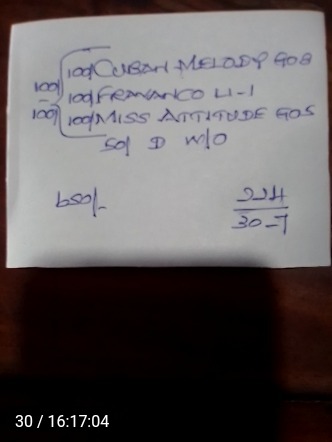 100/ 100/ CUBAN MELODY 908
100/ FRAVANCO 4-1
100/ 100/ MISS ATTITUDE 905
50/ D W/O
650/-
224
30-7
30 / 16:17:04